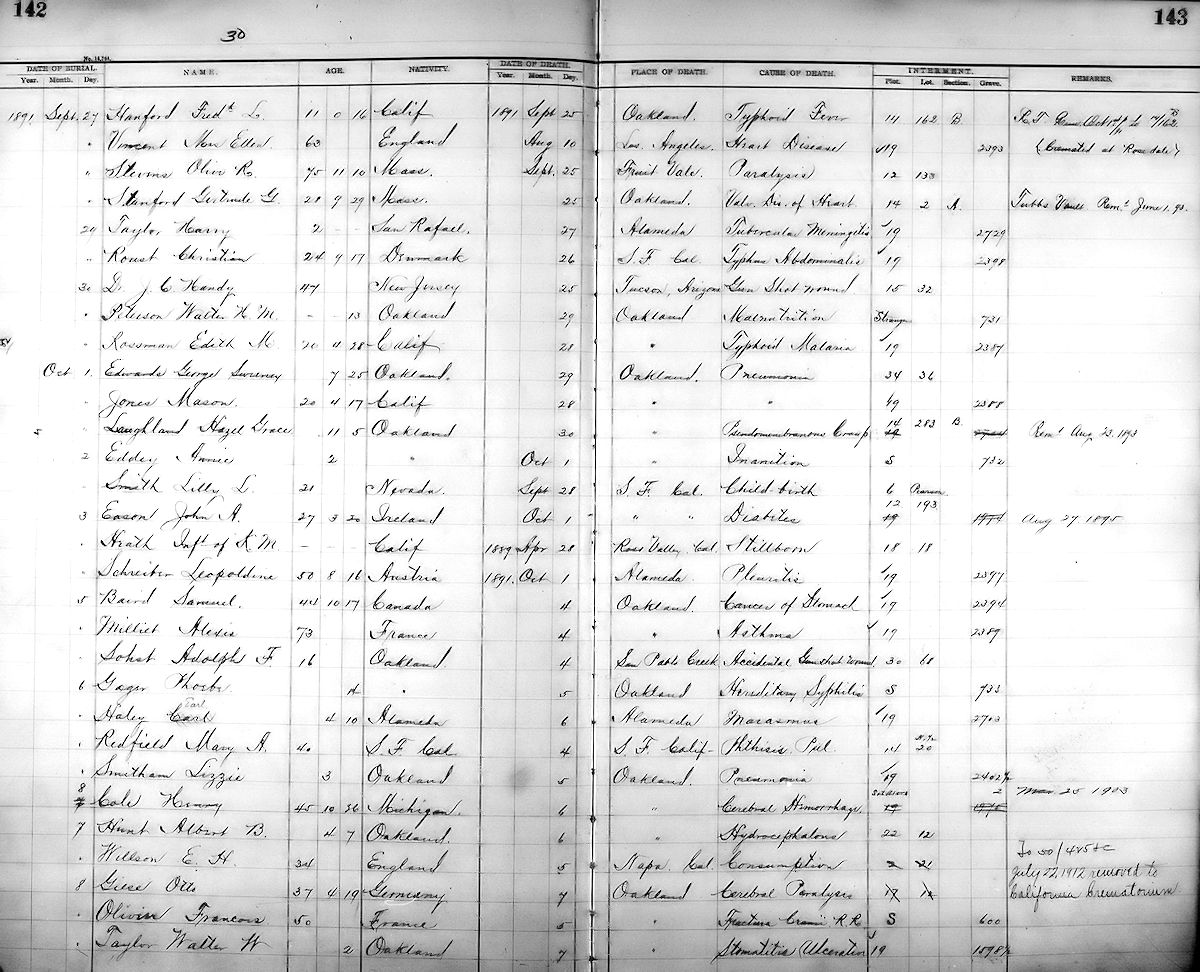 142
143
30
No. 14,744.
DATE OF BURIAL. NAME. AGE. NATIVITY. DATE OF DEATH. PLACE OF DEATH. CAUSE OF DEATH. INTERMENT. REMARKS.
Year. Month. Day. Year. Month. Day. Plot. Lot. Section. Grave.
1891 Sept. 27 Hanford Fredk L. 11 0 16 Calif 1891 Sept 25 Oakland. Typhoid Fever 14 162 B
" Vincent Mrs Ellen 63 England Aug 10 Los Angeles. Heart Disease 19 2393 (Cremated at Rosedale)
" Stevens Olive R. 75 11 10 Mass. Sept. 25 Fruit Vale. Paralysis 12 133
" Stanford Gertrude G. 28 9 29 Mass. 25 Oakland. Valv. Dis. of Heart 14 2 A. Tubbs Vault Remd June 1. 93.
29 Taylor Harry 2 - - San Rafael. 27 Alameda Tubercular Meningitis 19 2729
" Roust Christian 24 9 17 Denmark 26 S.F. Cal. Typhus Abdominalis 19 2398
30 Dr J. C. Handy 47 New Jersey 25 Tucson, Arizona Gun Shot wound 15 32
" Peterson Walter H. M. - - 13 Oakland 29 Oakland Malnutrition Stranger 731
" Rossman Edith M. 20 11 28 Calif 28 " Typhoid Malaria 19 2387
Oct 1. Edwards George Sweeney 7 25 Oakland. 29 Oakland. Pneumonia 34 36
" Jones Mason. 20 4 17 Calif 28 " " 49 2388
" Laughland Hazel Grace 11 5 Oakland 30 " Pseudomembranous Croup 14 283 B. Remd Aug 23. 1893
19
2 Eddey Annie 2 " Oct 1 " Inanition S 732
Smith Lilly L. 21 Nevada. Sept 28 S.F. Cal. Child-birth 6 Pearson
12 193
3 Eason John A. 27 3 20 Ireland Oct 1 " " Diabites 19 Aug 27 1895
" Heath Inft of K M. - - - Calif 1889 Apr 28 Ross Valley, Cal. Stillborn 18 18
" Schreiber Leopoldine 50 8 16 Austria 1891. Oct 1 Alameda. Pleuritis 19 2397
5 Baird Samuel. 44 10 17 Canada 4 Oakland. Cancer of Stomach 19 2394
" Milliet Alexis 73 France 4 " Asthma 19 2389
" Sohst Adolph F. 16 Oakland 4 San Pablo Creek Accidental Gunshot Wound 30 68
6 Gager Phoebe. " 5 Oakland Hereditary Syphilis S 733
Earl
" Haley Carl 4 10 Alameda 6 Alameda Marasmus 19 2703
" Redfield Mary A. 40 S.F. Cal 4 S.F. Calif- Phthisis Pul. 14 20
" Smitham Lizzie 3 Oakland 5 Oakland. Pneumonia 19 2402½
8 Soldiers 2
7 Cole Henry 45 10 26 Michigan. 6 " Cerebral Hemorrhage. 19 Mar 25 1903
7 Hunt Albert B. 4 7 Oakland. 6 " Hydrocephalous 22 12
To 50/
" Willson E. H. 34 England 5 Napa Cal. Consumption 2 21 July 22, 1912 removed to
8 Giese Otto 37 4 19 Germany 7 Oakland Cerebral Paralysis 17 California Crematorium
" Olivier Francois 50 France 5 " Fractura Cranii R.R. S 600
" Taylor Walter W 2 Oakland 7 " Stomatitis Ulcerative 19 1598½